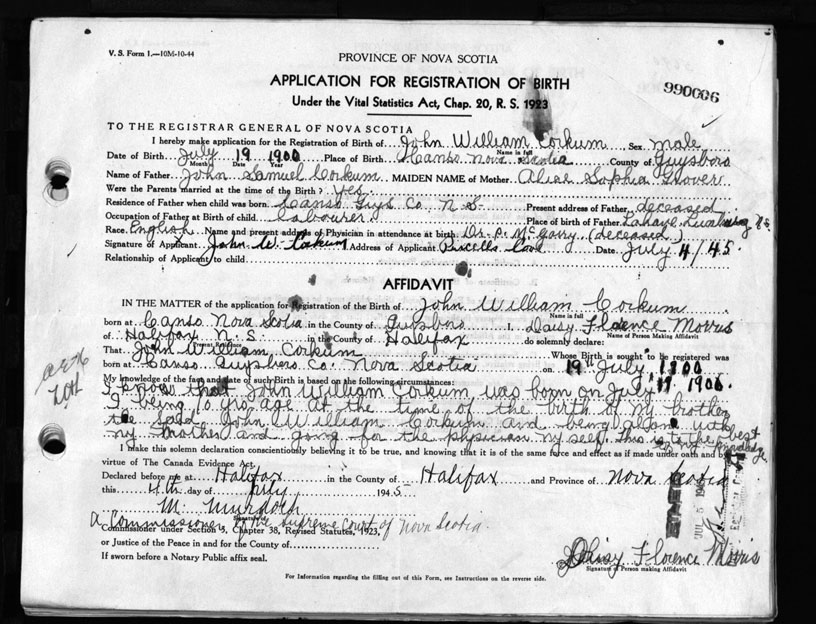 V. S. Form 1.—10M-10-44
PROVINCE OF NOVA SCOTIA
APPLICATION FOR REGISTRATION OF BIRTH
990006
Under the Vital Statistics Act, Chap. 20, R. S. 1923
TO THE REGISTRAR GENERAL OF NOVA SCOTIA
I hereby make application for the Registration of Birth of John William Corkum Sex male
Name in full
Date of Birth July 19 1900 Place of Birth Canso Nova Scotia County of Guysboro
Month Date Year
Name of Father John Samuel Corkum MAIDEN NAME of Mother Alice Sophia Grover
Were the Parents married at the time of the Birth? Yes.
Residence of Father when child was born Canso Guys Co. N. S. Present address of Father deceased
Occupation of Father at Birth of child Labourer Place of birth of Father Lahave
Race English Name and present address of Physician in attendance at birth Dr. P. McGarry (deceased)
Signature of Applicant John W. Corkum Address of Applicant Purcells Cove Date July 4/45.
Relationship of Applicant to child
AFFIDAVIT
IN THE MATTER of the application for Registration of the Birth of John William Corkum
Name in full
born at Canso Nova Scotia in the County of Guysboro I, Daisy Florence Morris
Name of Person Making Affidavit
of Halifax N. S. in the County of Halifax do solemnly declare:
Present Residence
That John William Corkum Whose Birth is sought to be registered was
born at Canso Guysboro Co. Nova Scotia on 19th July, 1900
My knowledge of the fact and date of such Birth is based on the following circumstances:
I know that John William Corkum was born on July 19 1900.
I being 10 yrs age at the time of the birth of my brother
the said John William Corkum and being alone with
my mother and going for the physician my self. This is to the best
of my knowledge
I make this solemn declaration conscientiously believing it to be true, and knowing that it is of the same force and effect as if made under oath and by
virtue of The Canada Evidence Act.
Declared before me at Halifax in the County of Halifax and Province of Nova Scotia
this 4th day of July 1945
M. Murdoch
Signature
A Commissioner of the Supreme Court of Nova Scotia.
Commissioner under Section 3, Chapter 38, Revised Statutes, 1923,
or Justice of the Peace in and for the County of
If sworn before a Notary Public affix seal.
Daisy Florence Morris
Signature of Person making Affidavit
For Information regarding the filling out of this Form, see Instructions on the reverse side.